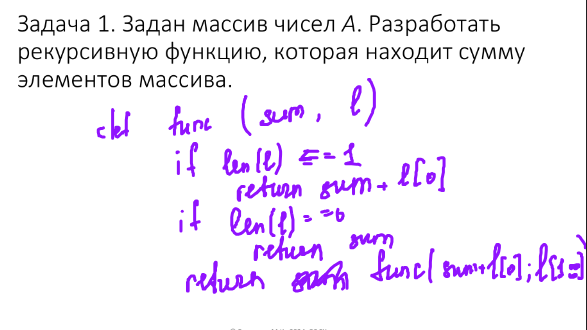 Задача 1. Задан массив чисел A. Разработать
рекурсивную функцию, которая находит сумму
элементов массива.
def func (sum, l)
if len(l) == 1
return sum + l[0]
if len(l) == 0
return sum
return func(sum+l[0]; l[1:])